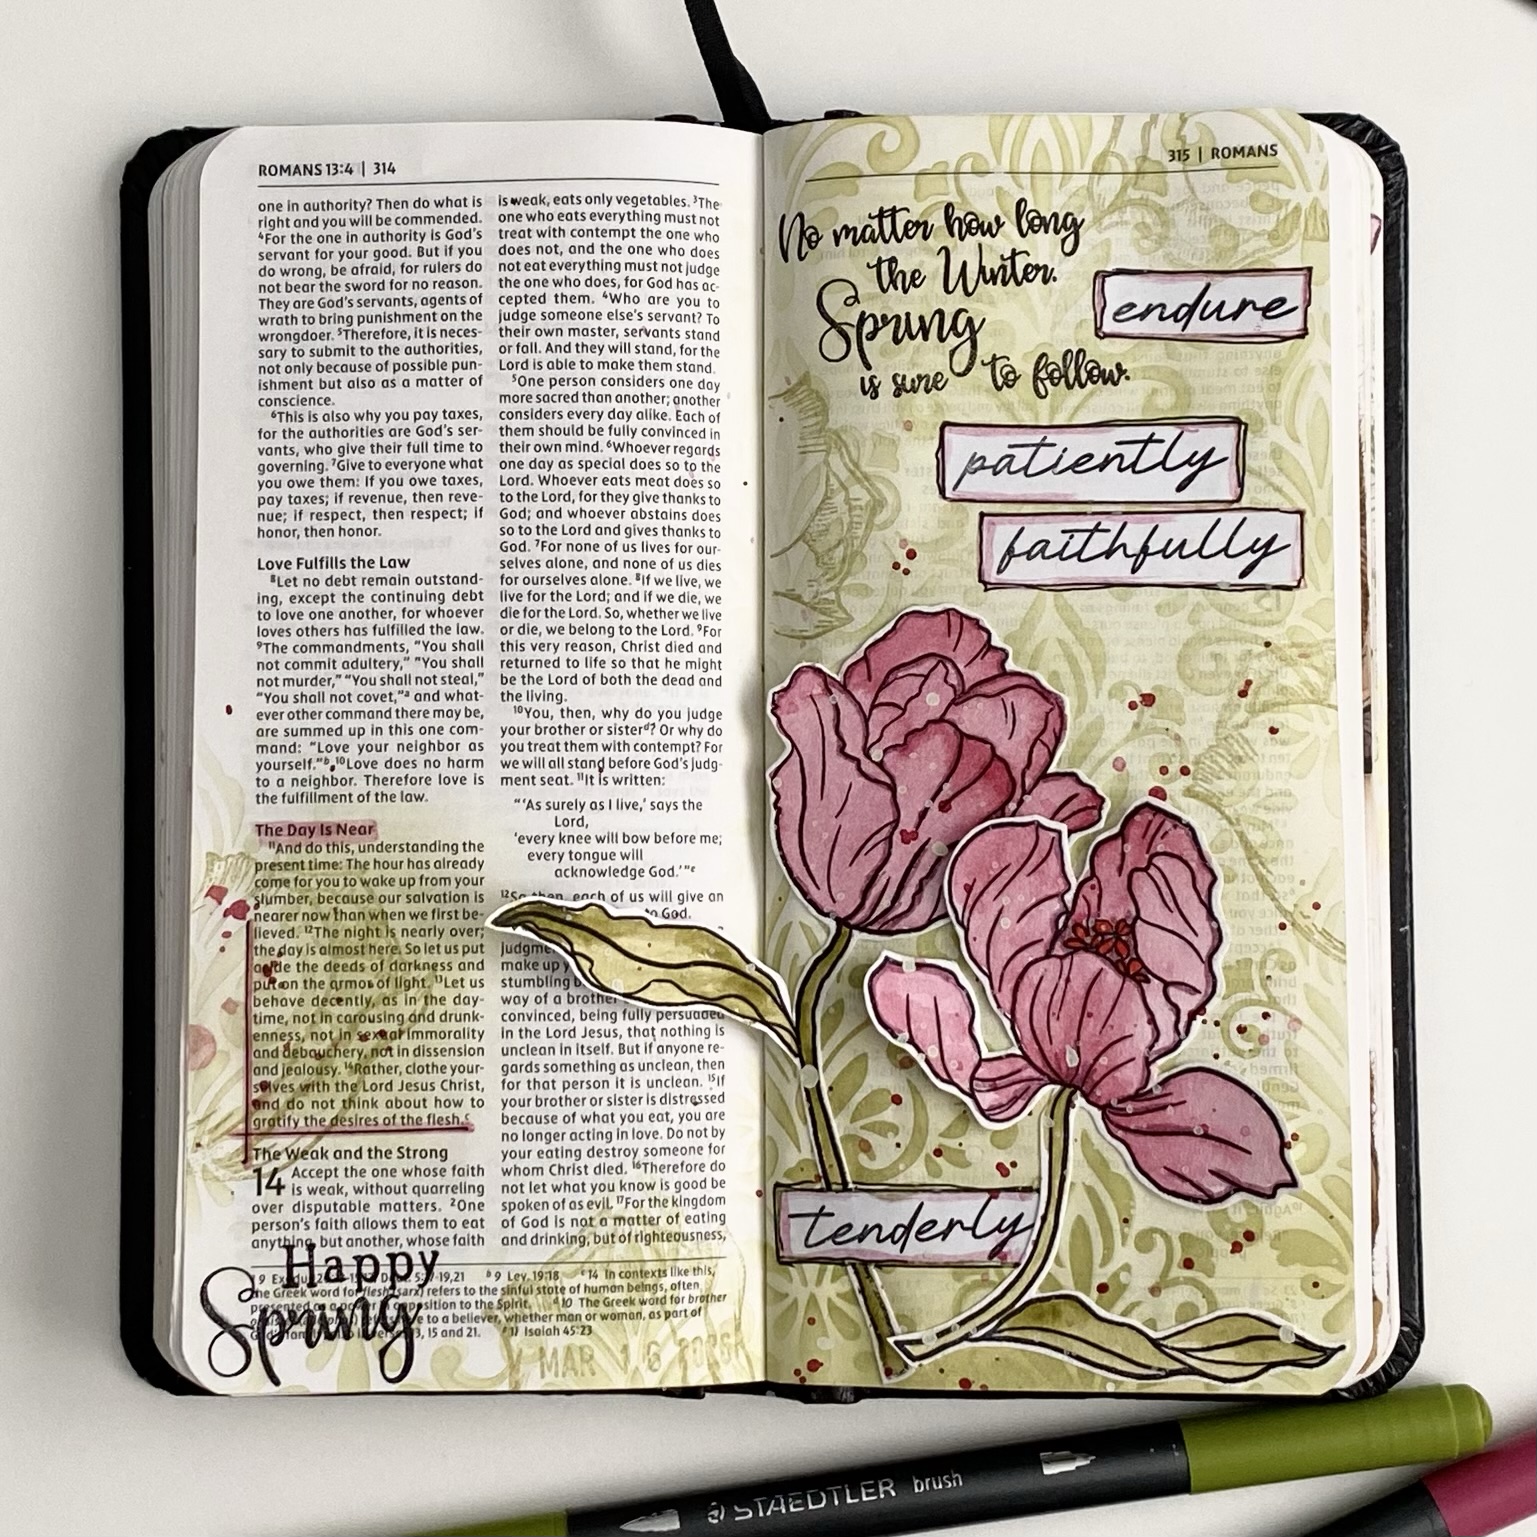 ROMANS 13:4 | 314
one in authority? Then do what is
right and you will be commended.
⁴For the one in authority is God's
servant for your good. But if you
do wrong, be afraid, for rulers do
not bear the sword for no reason.
They are God's servants, agents of
wrath to bring punishment on the
wrongdoer. ⁵Therefore, it is neces-
sary to submit to the authorities,
not only because of possible pun-
ishment but also as a matter of
conscience.
⁶This is also why you pay taxes,
for the authorities are God's ser-
vants, who give their full time to
governing. ⁷Give to everyone what
you owe them: If you owe taxes,
pay taxes; if revenue, then reve-
nue; if respect, then respect; if
honor, then honor.
Love Fulfills the Law
⁸Let no debt remain outstand-
ing, except the continuing debt
to love one another, for whoever
loves others has fulfilled the law.
⁹The commandments, "You shall
not commit adultery," "You shall
not murder," "You shall not steal,"
"You shall not covet,"ᵃ and what-
ever other command there may be,
are summed up in this one com-
mand: "Love your neighbor as
yourself."ᵇ ¹⁰Love does no harm
to a neighbor. Therefore love is
the fulfillment of the law.
The Day Is Near
¹¹And do this, understanding the
present time: The hour has already
come for you to wake up from your
slumber, because our salvation is
nearer now than when we first be-
lieved. ¹²The night is nearly over;
the day is almost here. So let us put
aside the deeds of darkness and
put on the armor of light. ¹³Let us
behave decently, as in the day-
time, not in carousing and drunk-
enness, not in sexual immorality
and debauchery, not in dissension
and jealousy. ¹⁴Rather, clothe your-
selves with the Lord Jesus Christ,
and do not think about how to
gratify the desires of the flesh.ᶜ
The Weak and the Strong
14 Accept the one whose faith
is weak, without quarreling
over disputable matters. ²One
person's faith allows them to eat
anything, but another, whose faith
is weak, eats only vegetables. ³The
one who eats everything must not
treat with contempt the one who
does not, and the one who does
not eat everything must not judge
the one who does, for God has ac-
cepted them. ⁴Who are you to
judge someone else's servant? To
their own master, servants stand
or fall. And they will stand, for the
Lord is able to make them stand.
⁵One person considers one day
more sacred than another; another
considers every day alike. Each of
them should be fully convinced in
their own mind. ⁶Whoever regards
one day as special does so to the
Lord. Whoever eats meat does so
to the Lord, for they give thanks to
God; and whoever abstains does
so to the Lord and gives thanks to
God. ⁷For none of us lives for our-
selves alone, and none of us dies
for ourselves alone. ⁸If we live, we
live for the Lord; and if we die, we
die for the Lord. So, whether we live
or die, we belong to the Lord. ⁹For
this very reason, Christ died and
returned to life so that he might
be the Lord of both the dead and
the living.
¹⁰You, then, why do you judge
your brother or sisterᵈ? Or why do
you treat them with contempt? For
we will all stand before God's judg-
ment seat. ¹¹It is written:
"'As surely as I live,' says the
Lord,
'every knee will bow before me;
every tongue will
acknowledge God.'"ᵉ
¹²So then, each of us will give an
to God.
judgme
make up y
stumbling b
way of a brother
convinced, being fully persuaded
in the Lord Jesus, that nothing is
unclean in itself. But if anyone re-
gards something as unclean, then
for that person it is unclean. ¹⁵If
your brother or sister is distressed
because of what you eat, you are
no longer acting in love. Do not by
your eating destroy someone for
whom Christ died. ¹⁶Therefore do
not let what you know is good be
spoken of as evil. ¹⁷For the kingdom
of God is not a matter of eating
and drinking, but of righteousness,
19,21 ᵇ 9 Lev. 19:18 ᶜ 14 In contexts like this,
the Greek word for flesh (sarx) refers to the sinful state of human beings, often
presented as a power in opposition to the Spirit. ᵈ 10 The Greek word for brother
to a believer, whether man or woman, as part of
13, 15 and 21. ᵉ 11 Isaiah 45:23
Happy
Spring
MAR 16
315 | ROMANS
No matter how long
the Winter.
Spring
is sure to follow.
endure
patiently
faithfully
tenderly
STAEDTLER brush